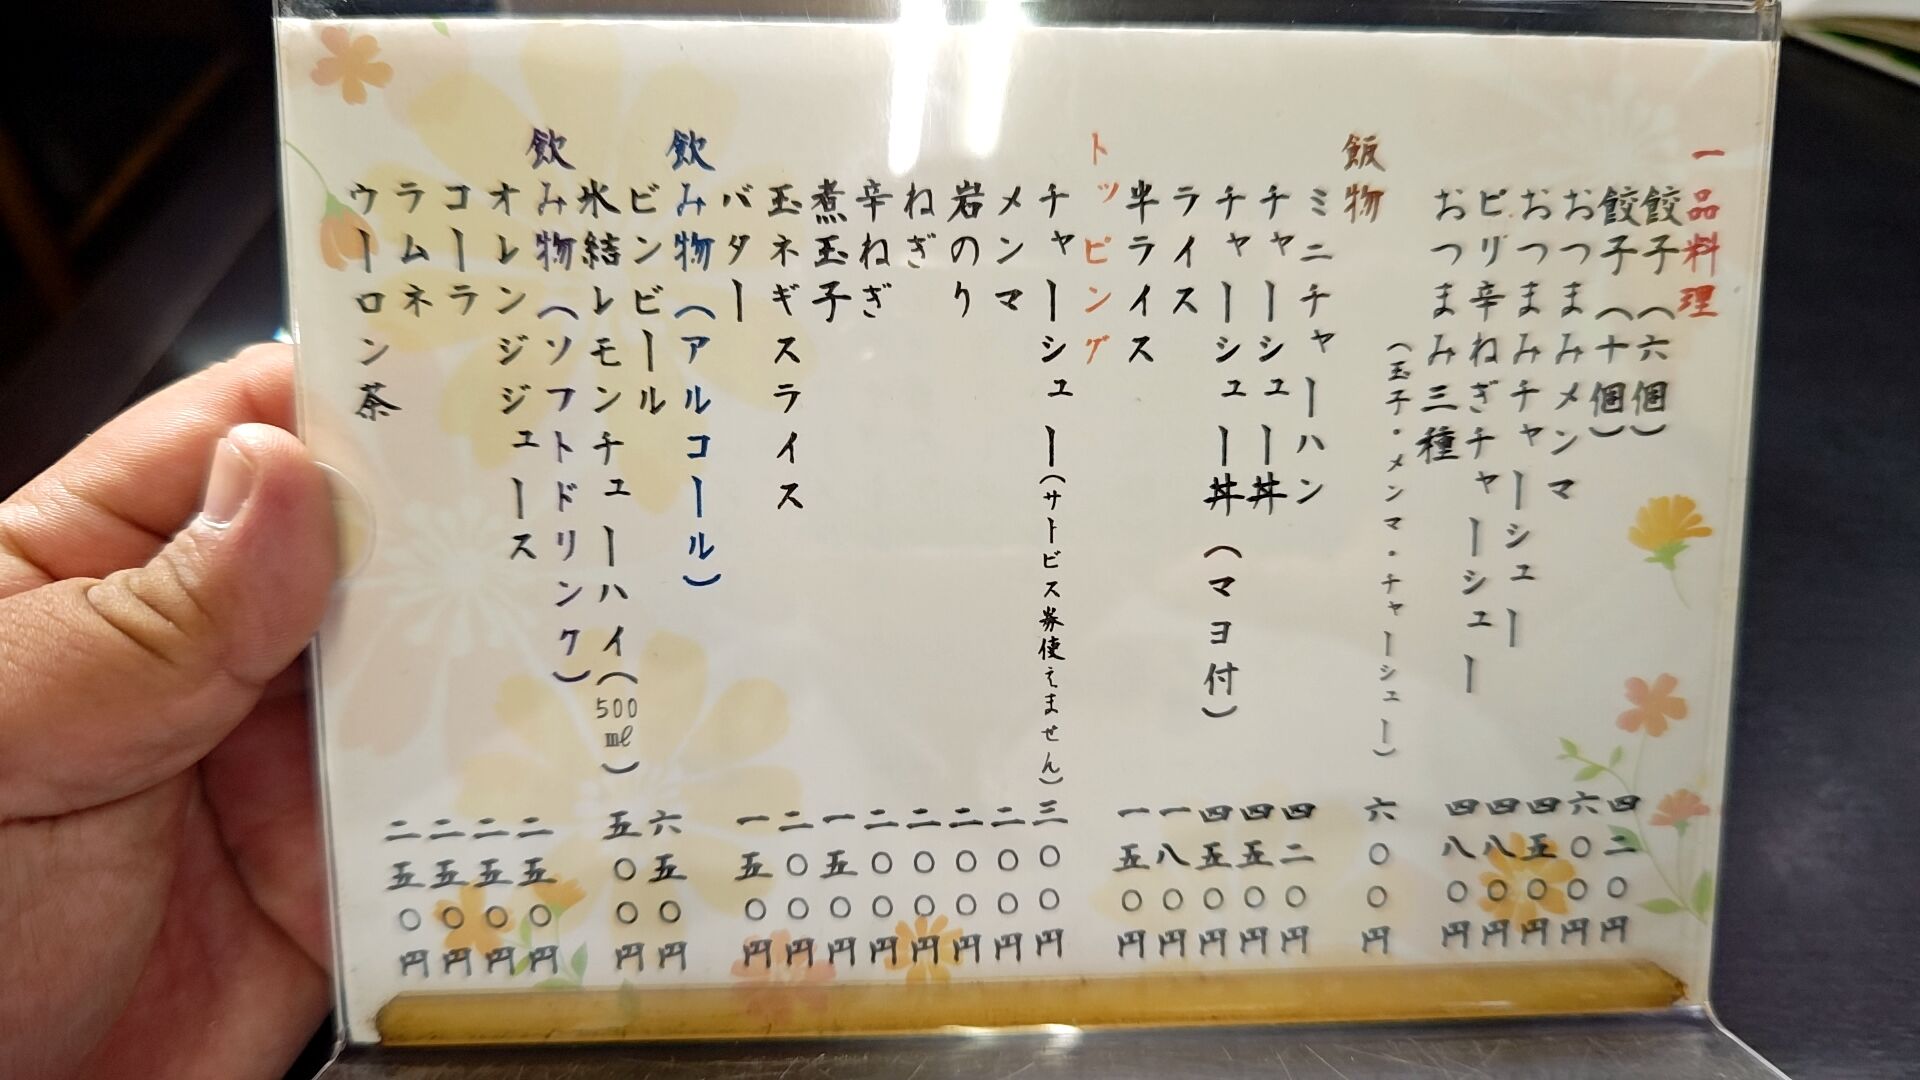 一品料理
餃子(六個) 四二〇円
餃子(十個) 六〇〇円
おつまみメンマ 四五〇円
おつまみチャーシュー 四八〇円
ピリ辛ねぎチャーシュー 四八〇円
おつまみ三種
(玉子・メンマ・チャーシュー) 六〇〇円
飯物
ミニチャーハン 四二〇円
チャーシュー丼 四五〇円
チャーシュー丼(マヨ付) 四五〇円
ライス 一八〇円
半ライス 一五〇円
トッピング
チャーシュー(サービス券使えません) 三〇〇円
メンマ 二〇〇円
岩のり 二〇〇円
ねぎ 二〇〇円
辛ねぎ 二〇〇円
煮玉子 一五〇円
玉ネギスライス 二〇〇円
バター 一五〇円
飲み物(アルコール)
ビンビール 六五〇円
氷結レモンチューハイ(500㎖) 五〇〇円
飲み物(ソフトドリンク)
オレンジジュース 二五〇円
コーラ 二五〇円
ラムネ 二五〇円
ウーロン茶 二五〇円